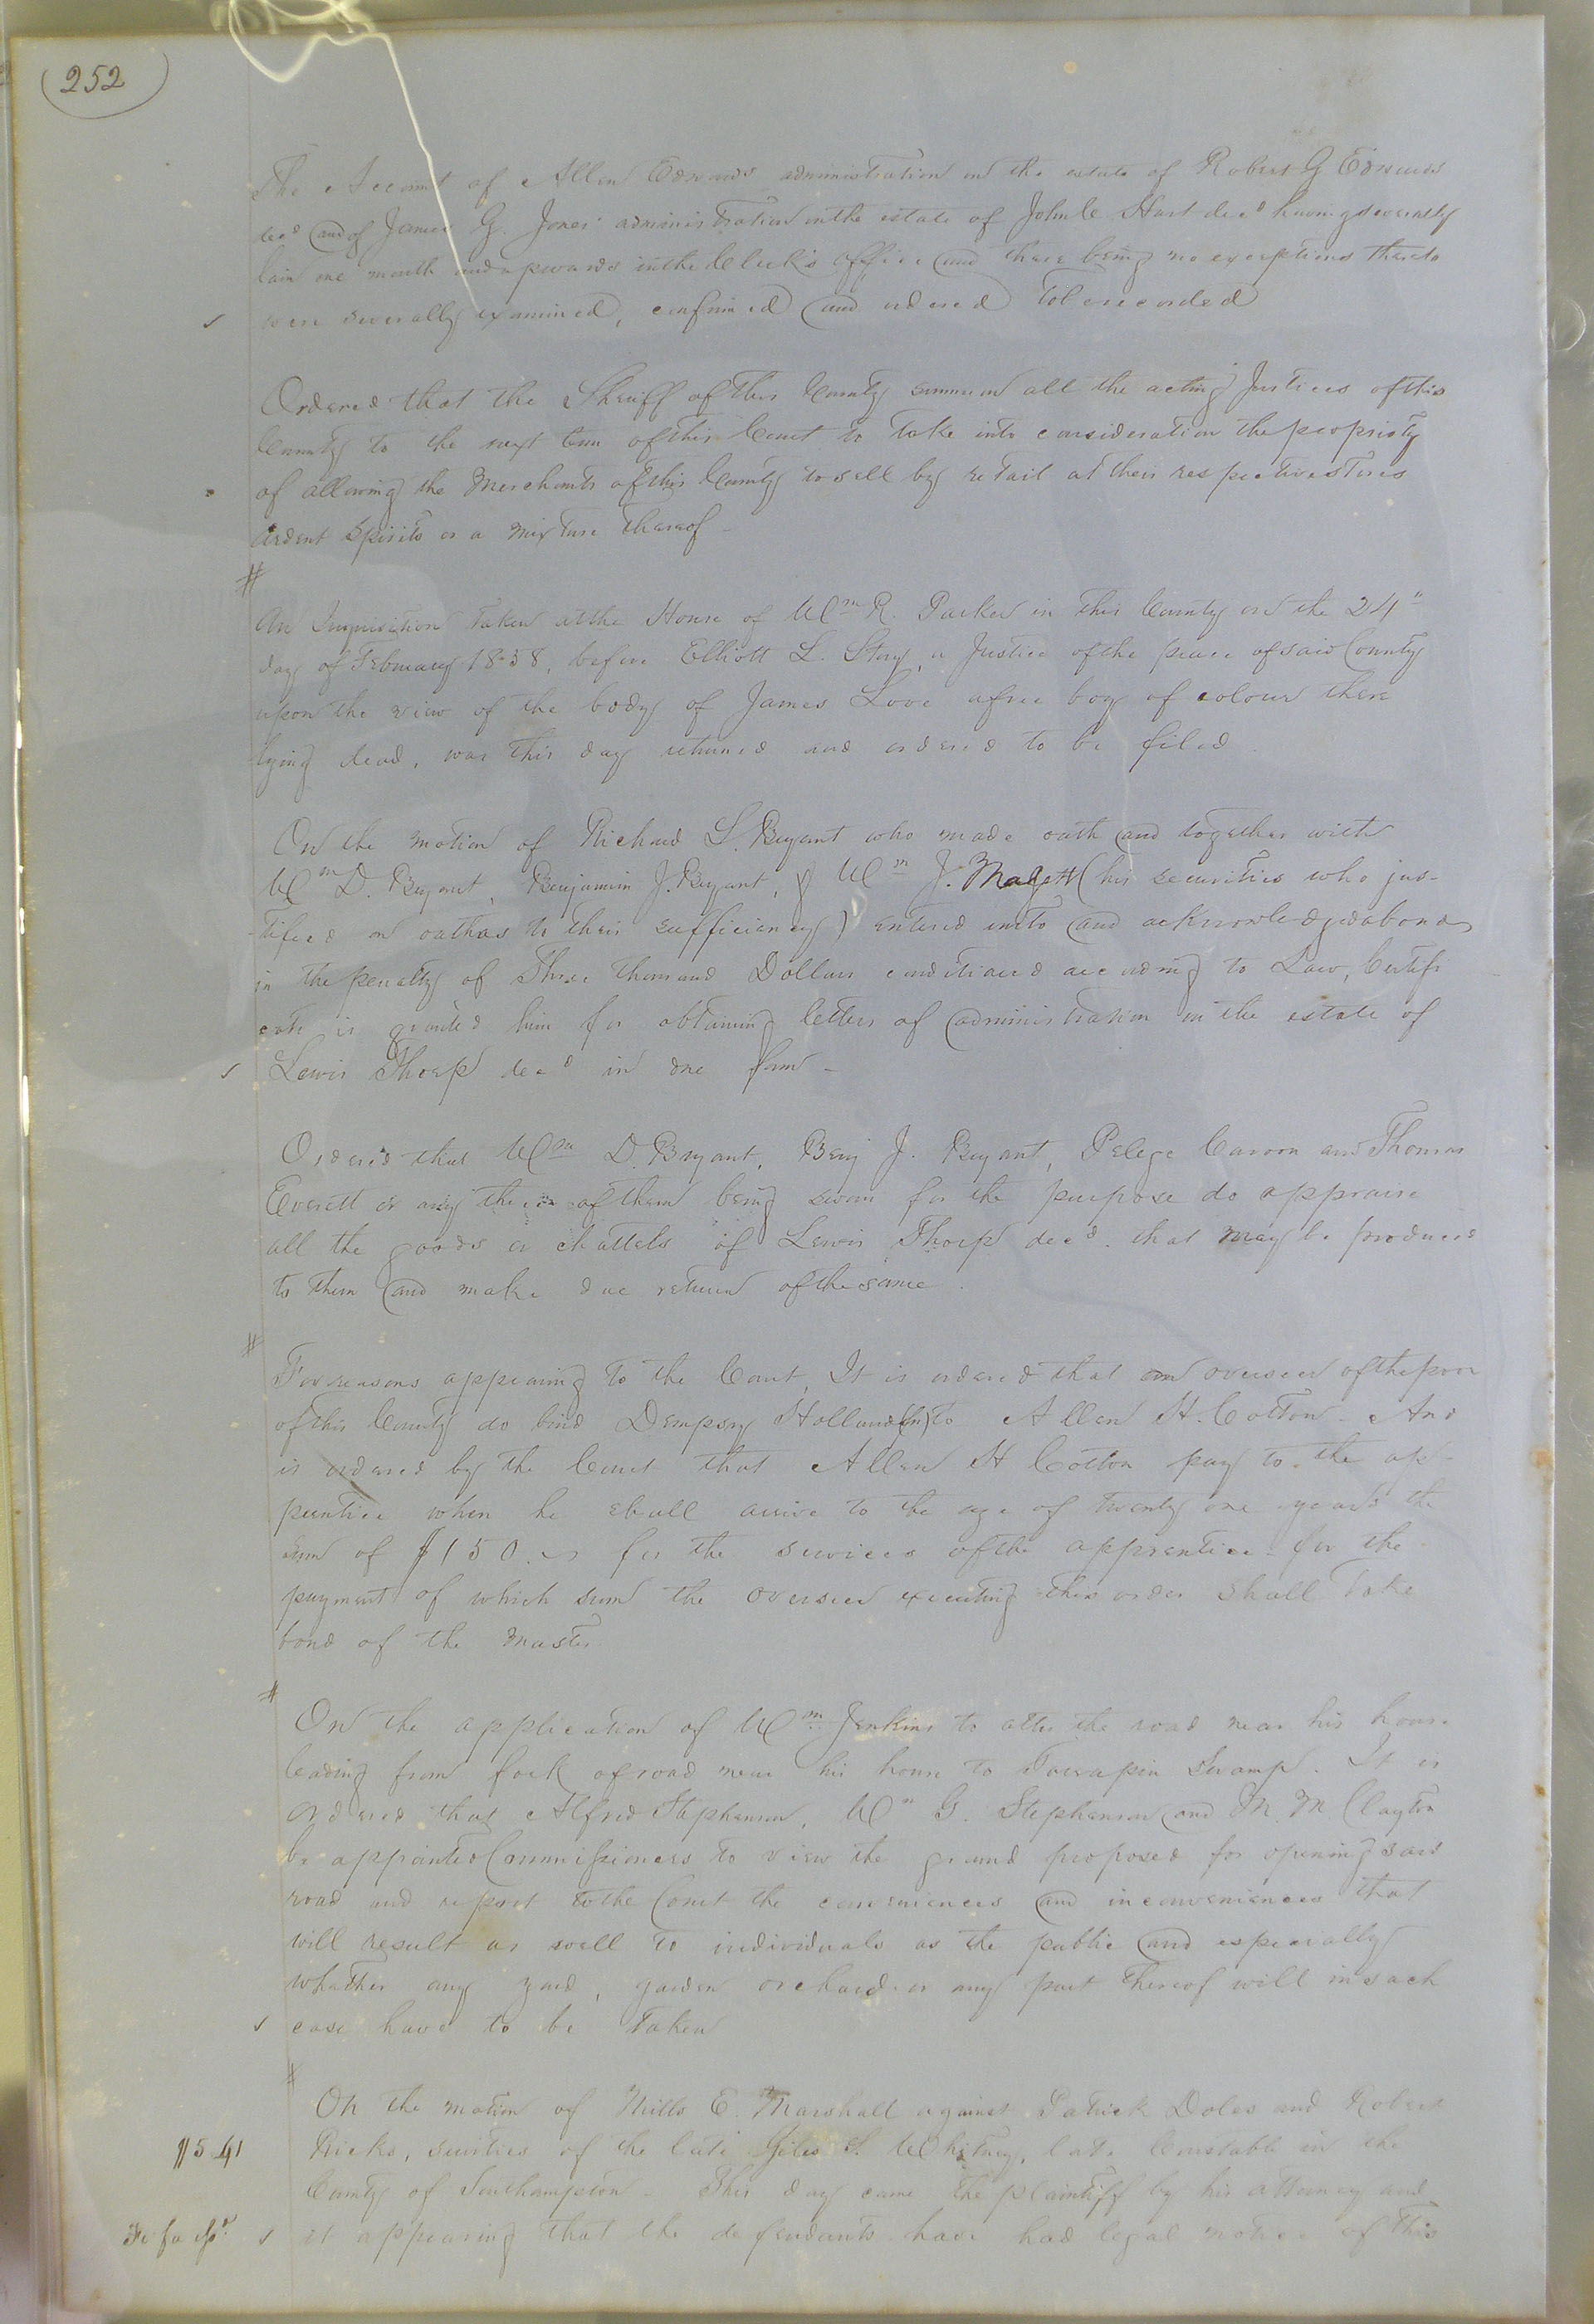 252
The Account of Allen Edwards administration on the estate of Robert G Edwards
decd and of James G. Jones' administration on the estate of John C Hart decd having severally
lain one month and upwards in the Clerk's office and there being no exceptions thereto
were severally examined, confirmed and ordered to be recorded
Ordered that the Sheriff of this County summon all the acting Justices of this
County to the next term of this Court to take into consideration the propriety
of allowing the Merchants of this County to sell by retail at their respective stores
Ardent Spirits or a mixture thereof -
#
An Inquisition taken at the House of Wm R. Parker in this County on the 24"
day of February 1858, before Elliott L. Story, a Justice of the peace of said County
upon the view of the body of James Love a free boy of colour there
lying dead, was this day returned and ordered to be filed.
On the motion of Richard L. Bryant who made oath and together with
Wm D. Bryant, Benjamin J. Bryant, & Wm J. (his securities who jus-
tified on oath as to their sufficiency) entered into and acknowledged a bond
in the penalty of Three thousand Dollars conditioned according to Law, Certifi
cate is granted him for obtaining letters of administration on the estate of
Lewis Thorp decd in due form -
Ordered that Wm D. Bryant, Benj J. Bryant, Pelege and Thomas
Everett or any three of them being sworn for the purpose do appraise
all the goods or chattels of Lewis Thorp decd. that may be produced
to them and make due return of the same.
#
For reasons appearing to the Court, It is ordered that an overseer of the poor
of this County do bind Dempsey Holland (fn) to Allen H. Cotton - And
is ordered by the Court that Allen H Cotton pay to the ap-
prentice when he shall arrive to the age of twenty one years the
sum of $150. for the services of the apprentice - for the
payment of which sum the overseer executing this order shall take
bond of the Master
#
On the application of Wm Jenkins to alter the road near his house
leading from fork of road near his house to Terrapin Swamp. It is
Ordered that Alfred Stephenson, Wm G. Stephenson and M. M. Clayton
be appointed Commissioners to view the ground proposed for opening said
road and report to the Court the conveniences and inconveniences that
will result as well to individuals as the public and especially
whether any yard, garden orchard or any part thereof will in such
case have to be taken
#
On the motion of Mills E. Marshall against Patrick Doles and Robert
Ricks, sureties of the late Giles S. Whitney, late Constable in the
County of Southampton - This day came the plaintiff by his attorney and
it appearing that the defendants have had legal notice of this